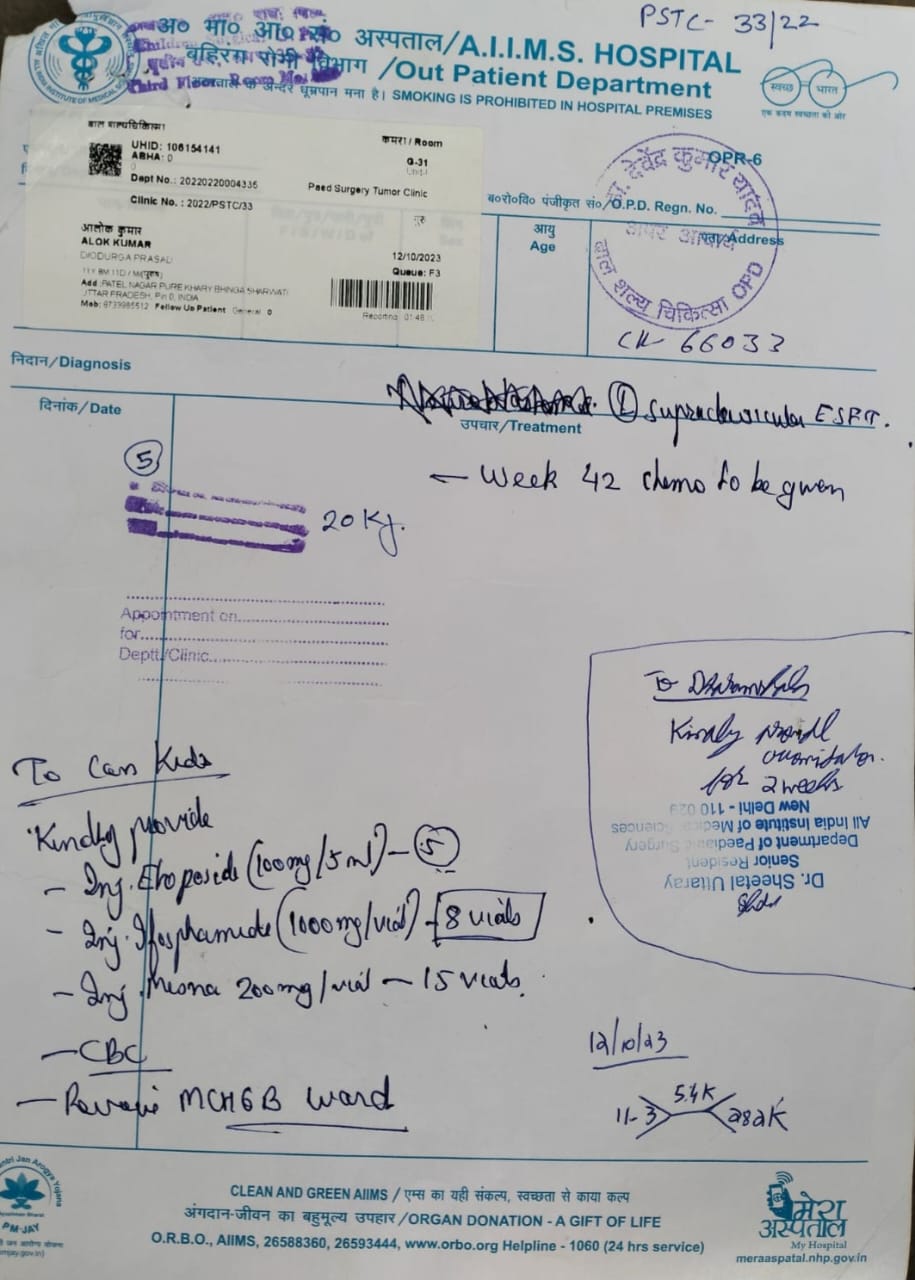 PSTC- 33/22
अ० भा० आ० सं० अस्पताल/A.I.I.M.S. HOSPITAL
बहिरंग रोगी विभाग /Out Patient Department
धूम्रपान मना है। SMOKING IS PROHIBITED IN HOSPITAL PREMISES
स्वच्छ भारत
एक कदम स्वच्छता की ओर
बाल शल्यचिकित्सा
कमरा / Room
UHID: 106154141
ABHA: 0
G-31
Dept No.: 20220220004335
Paed Surgery Tumor Clinic
Clinic No. : 2022/PSTC/33
गुरु
आलोक कुमार
ALOK KUMAR
12/10/2023
Queue: F3
11Y 8M 11D / M(पुरुष)
Add :PATEL NAGAR PURE KHARY BHINGA
UTTAR PRADESH, Pin 0, INDIA
Follow Up Patient General 0
Reporting
OPR-6
ब०रो०वि० पंजीकृत सं०/O.P.D. Regn. No.
आयु
Age
पता/Address
डा. देवेंद्र कुमार यादव
अपर आचार्य
बाल शल्य चिकित्सा OPD
CH- 66033
निदान/Diagnosis
दिनांक/Date
(L) supraclavicular ESFT.
उपचार/Treatment
– Week 42 chemo to be given
5
20 Kg.
Appointment on
for
Deptt./Clinic
To Dharamshala
Kindly
for 2 weeks
New Delhi - 110 029
All India Institute of Medical Sciences
Department of Paediatric Surgery
Senior Resident
Dr. Sheetal Uttarya
To Can Kids
Kindly provide
- Inj. Etoposide (100mg/5ml) – 5
- Inj. Ifosphamide (1000mg/vial) – 8 vials
- Inj Mesna 200mg/vial – 15 vials.
– CBC
– MCH6B ward
12/10/23
11.3 5.4K 282K
PM-JAY
CLEAN AND GREEN AIIMS / एम्स का यही संकल्प, स्वच्छता से काया कल्प
अंगदान-जीवन का बहुमूल्य उपहार /ORGAN DONATION - A GIFT OF LIFE
O.R.B.O., AIIMS, 26588360, 26593444, www.orbo.org Helpline - 1060 (24 hrs service)
मेरा
अस्पताल
My Hospital
meraaspatal.nhp.gov.in